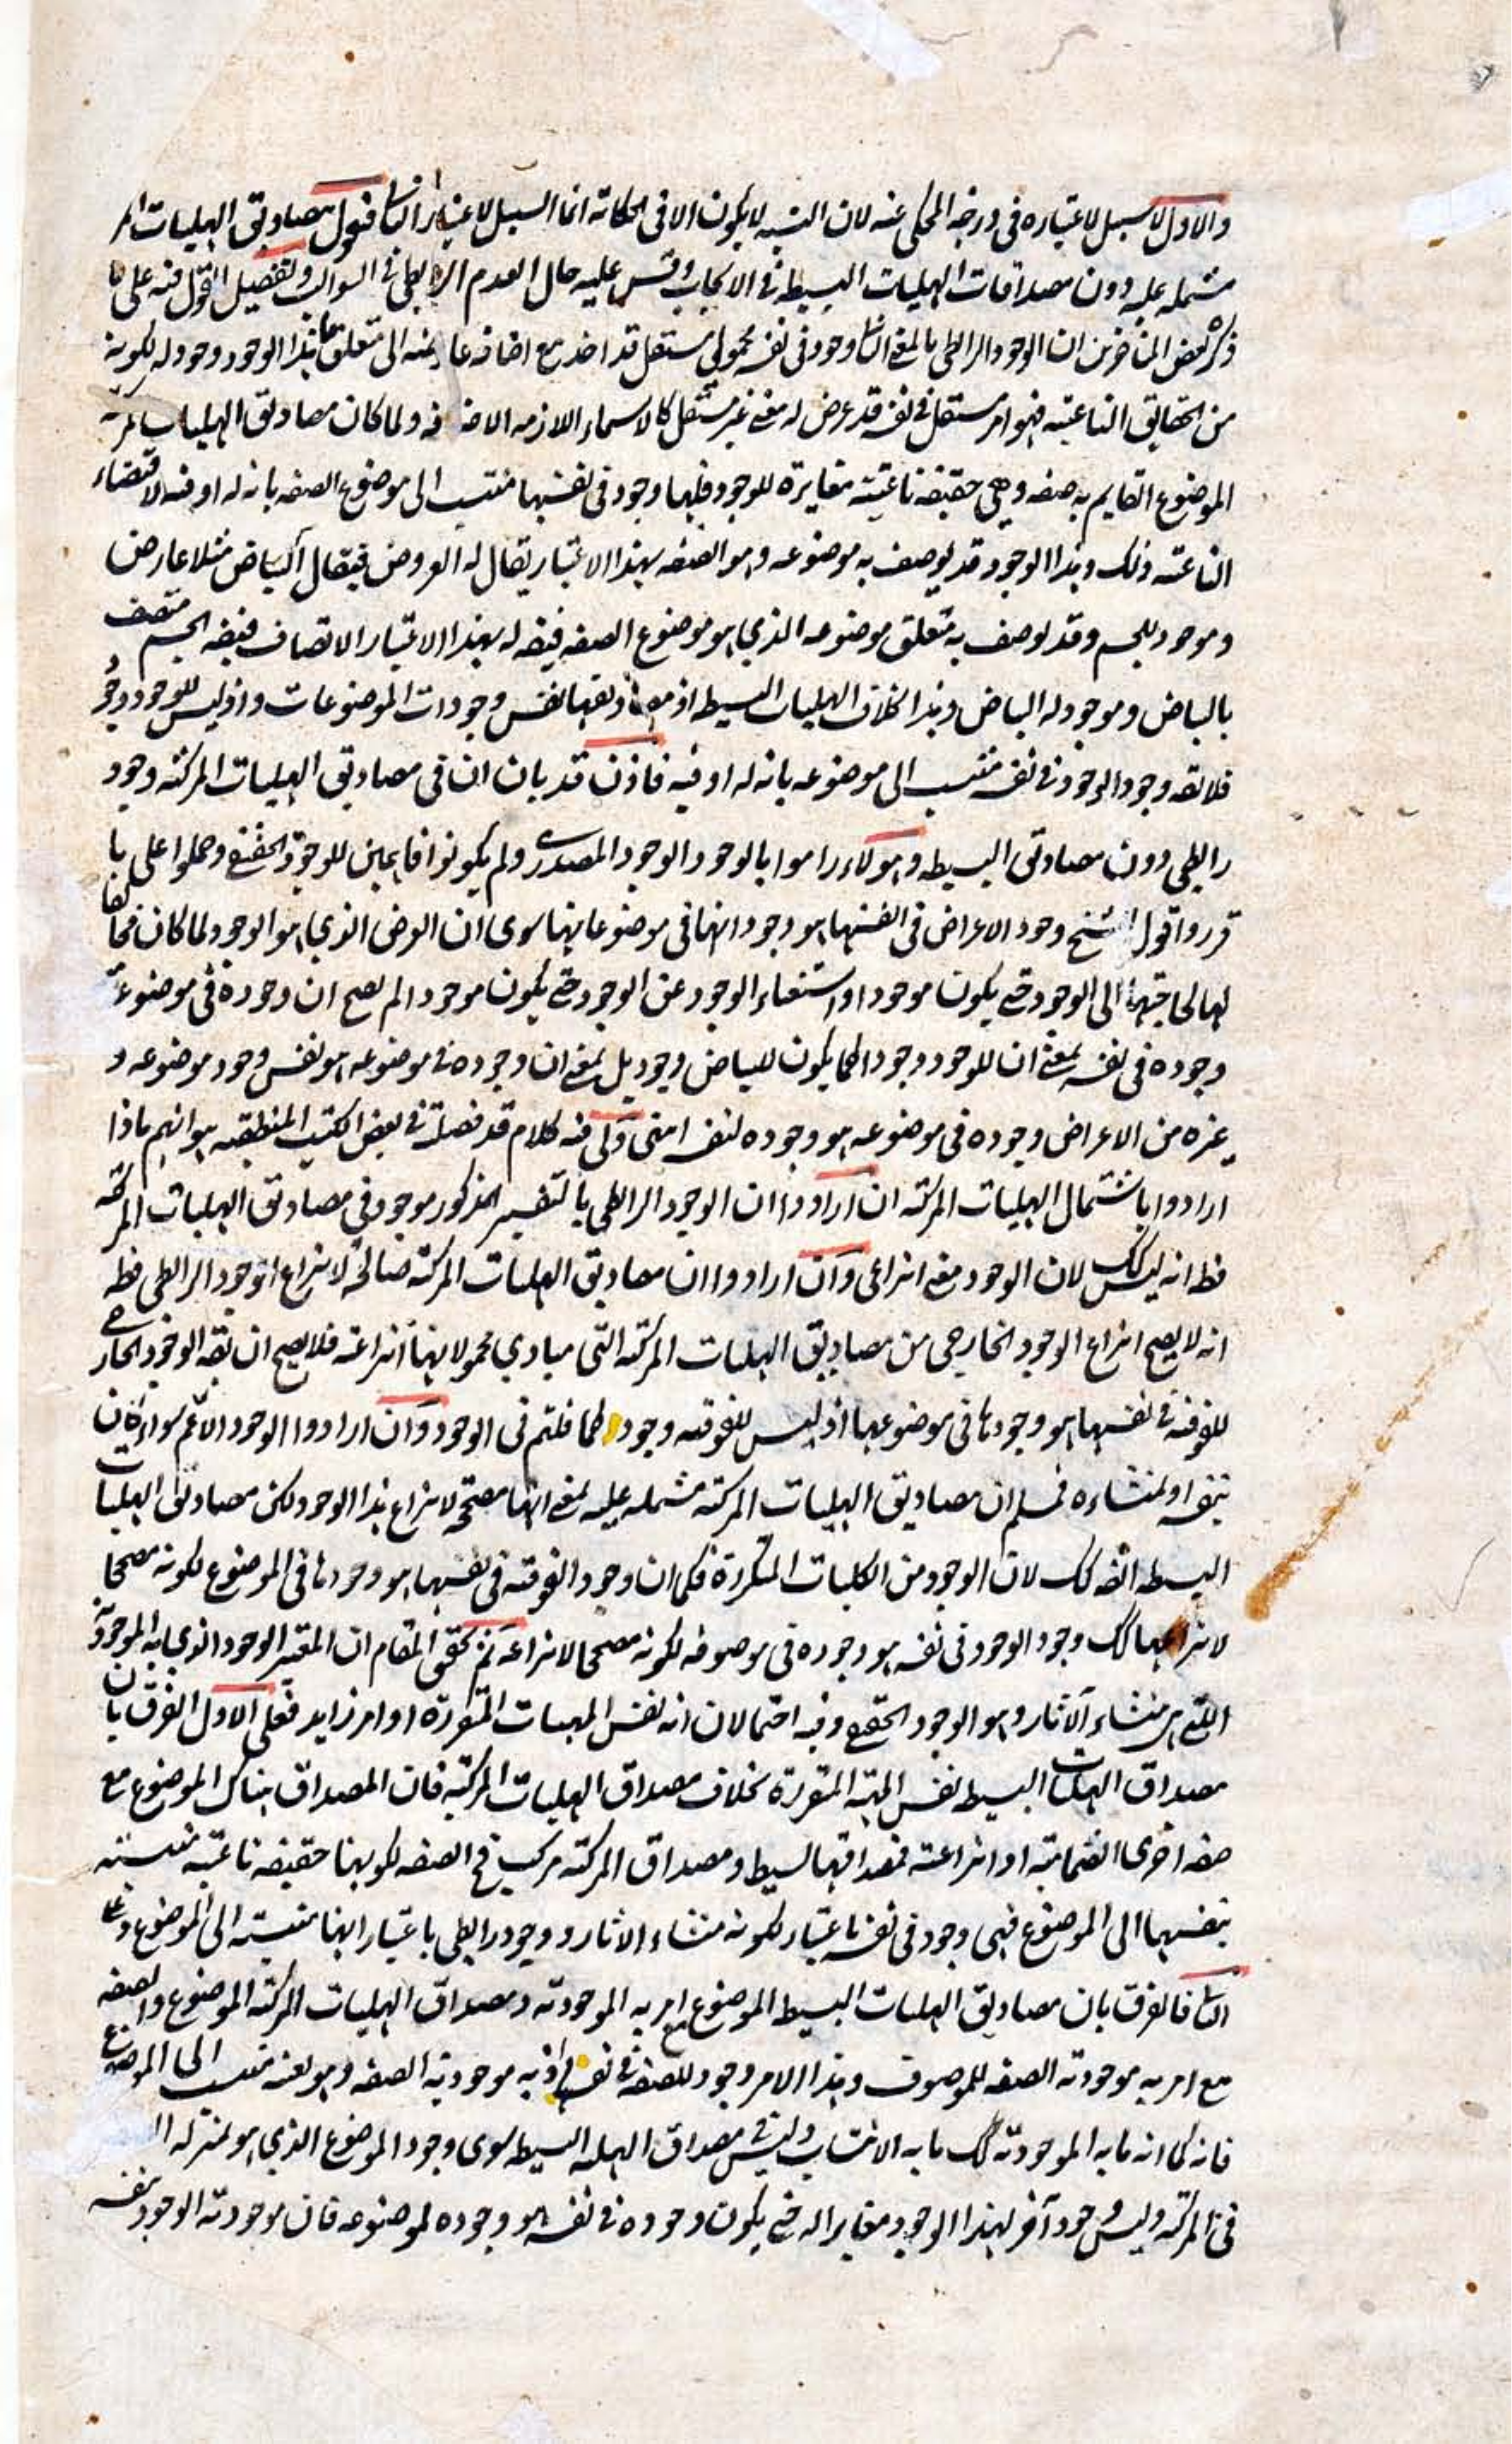 والاول لا سبيل لاعتباره فى درجة المحكى عنه لان النسبه لا يكون الا فى الحكاته انما السبيل لاعتبار الثانى فنقول مصاديق الهليات المر
مشتمله عليه دون مصداقات الهليات البسيطه فى الايجاب وقس عليه حال العدم الرابطى فى السوالب وتفصيل القول فيه على ما
ذكره بعض المتاخرين ان الوجود الرابطى بالمعنى الثانى وجود فى نفسه محمولى مستقل قد اخذ مع اضافه عارضه الى متعلق ما بهذا الوجود وجود له لكونه
من الحقايق الناعتيه فهو امر مستقل فى نفسه قد عرض له معنى غير مستقل كالاسماء اللازمه الاضافه ولما كان مصاديق الهليات المركبه
الموضوع القايم به صفه وهى حقيقه ناعتيه مغايرة للوجود فلها وجود فى نفسها منتسب الى موضوع الصفه بانه له او فيه لاقتضاء
الناعتيه ذلك وهذا الوجود قد يوصف به موضوعه وهو الصفه بهذا الاعتبار يقال له العروض فيقال البياض مثلا عارض
وموجود للجسم وقد يوصف به متعلق موضوعه الذى هو موضوع الصفه فيقه له بهذا الاعتبار الاتصاف فيقه الجسم متصف
بالبياض وموجود له البياض وهذا بخلاف الهليات البسيطه اذ مصاديقها نفس وجودات الموضوعات واذ ليس للوجود وجود
فلا يقه وجود الوجود فى نفسه منتسب الى موضوعه بانه له او فيه فاذن قد بان ان فى مصاديق الهليات المركبه وجود
رابطى دون مصاديق البسيطه وهولاء راموا بالوجود الوجود المصدرى ولم يكونوا قايلين للوجود الحقيقى وحملوا على ما
قرروا قول الشيخ وجود الاعراض فى انفسها هو وجوداتها فى موضوعاتها سوى ان العرض الذى هو الوجود لما كان مخالفا
لها لحاجتها الى الوجود حتى يكون موجودا واستغناء الوجود عن الوجود حتى يكون موجودا لم يصح ان وجوده فى موضوعه
وجوده فى نفسه بمعنى ان للوجود وجودا كما يكون للبياض وجود بل بمعنى ان وجوده فى موضوعه هو نفس وجود موضوعه و
غيره من الاعراض وجوده فى موضوعه هو وجوده لنفسه انتهى ولى فيه كلام قد فصلته فى بعض الكتب المنطقيه هو انهم ماذا
ارادوا باشتمال الهليات المركبه ان ارادوا ان الوجود الرابطى بالتفسير المذكور موجود فى مصاديق الهليات المركبه
فظ انه ليس كك لان الوجود معنى انتزاعى وان ارادوا ان مصاديق الهليات المركبه صالحة لانتزاع الوجود الرابطى فظه
انه لا يصح انتزاع الوجود الخارجى من مصاديق الهليات المركبه التى مبادى محمولاتها انتزاعيه فلا يصح ان يقه الوجود الخارجى
للفوقيه فى نفسها هو وجودها فى موضوعها اذ ليس للفوقيه وجود كما قلتم فى الوجود وان ارادوا الوجود الاعم سواء كان
بنفسه او لمنشاءه فسلم ان مصاديق الهليات المركبه مشتمله عليه بمعنى انها مصححة لانتزاع هذا الوجود ولكن مصاديق الهليات
البسيطه ايضه كك لان الوجود من الكليات المتكررة فكما ان وجود الفوقيه فى نفسها هو وجودها فى الموضوع لكونه مصححا
لانتزاعها كك وجود الوجود فى نفسه هو وجوده فى موصوفه لكونه مصححا لانتزاعه ثم تحقيق المقام ان المعتبر الوجود الذى به الموجوديه
التى هى منشاء الآثار وهو الوجود الحقيقى وفيه احتمالان انه نفس المهيات المتقررة او امر زايد فعلى الاول الفرق بان
مصداق الهليات البسيط نفس المهيه المتقررة بخلاف مصداق الهليات المركبه فان المصداق هناك الموضوع مع
صفه اخرى انضماميه او انتزاعيه فمصداقها بسيط ومصداق المركبه مركب فى الصفه لكونها حقيقه ناعتيه منتسبه
بنفسها الى الموضوع فهى وجود فى نفسه باعتبار لكونه منشاء الاثار ووجود رابطى باعتبار انها منتسبه الى الموضوع وعلى
الثانى فالفرق بان مصاديق الهليات البسيط الموضوع مع امر به الموجوديه ومصداق الهليات المركبه الموضوع والصفه
مع امر به موجوديه الصفه للموصوف وهذا الامر وجود للصفه فى نفسها اذ به موجودية الصفه وهو بعينه منتسب الى الموضوع
فانه كما انه ما به الموجوديه كك ما به الانتساب وليس فى مصداق الهليه البسيطه سوى وجود الموضوع الذى هو بمنزله ا
فى المركبه وليس وجود آخر لهذا الوجود مغايرا له حتى يكون وجوده فى نفسه هو وجوده لموضوعه فان موجوديه الوجود بنفسه